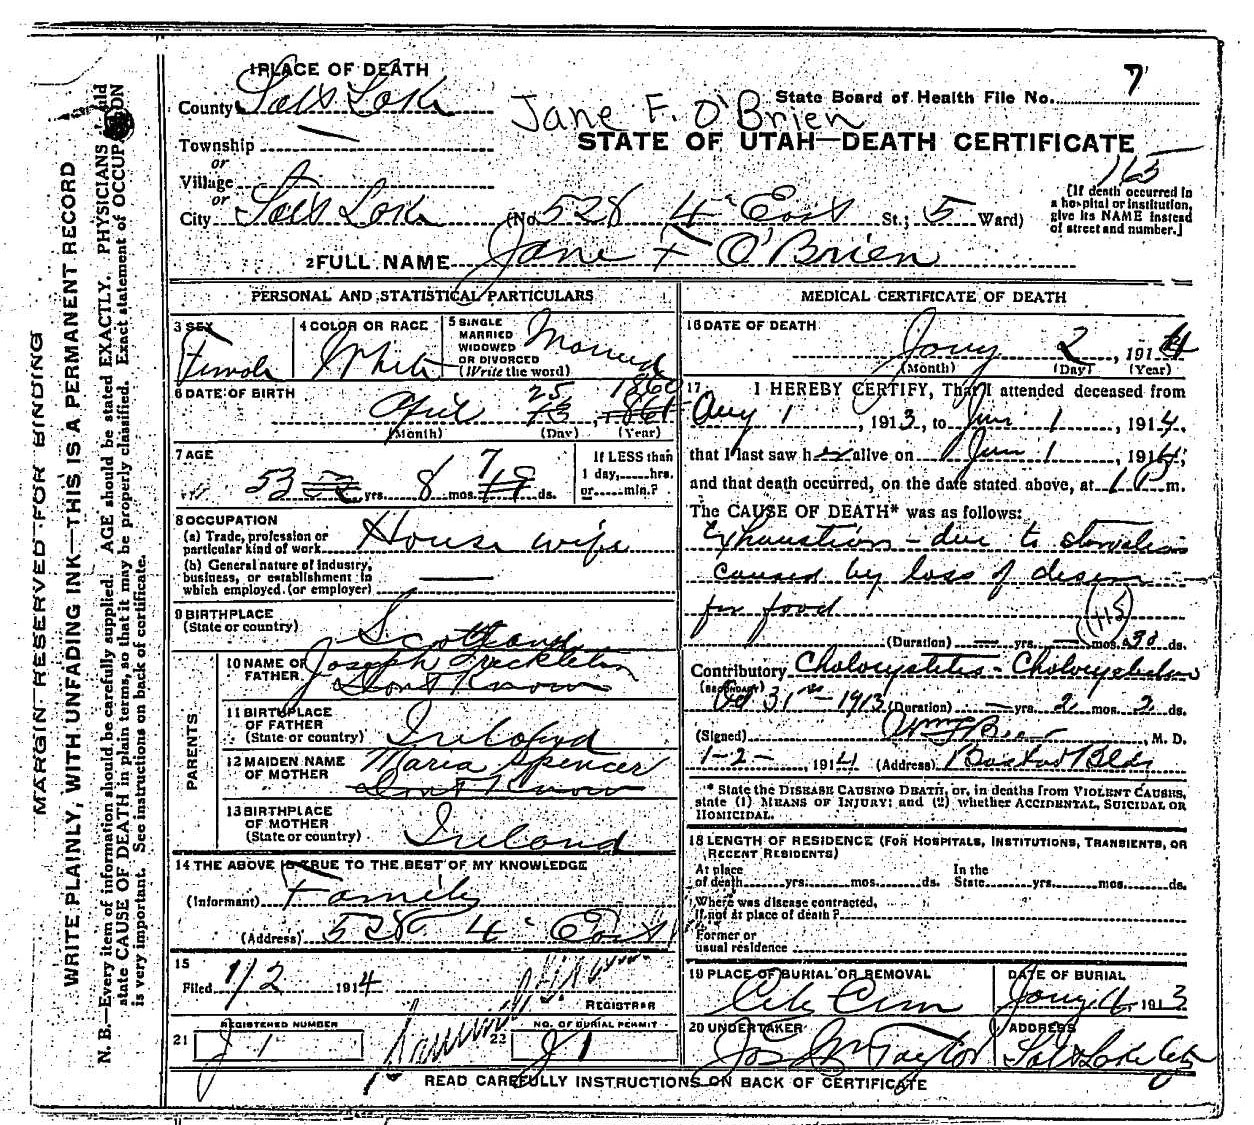 1 PLACE OF DEATH
County Salt Lake
Jane F. O'Brien
State Board of Health File No. 7
STATE OF UTAH—DEATH CERTIFICATE
Township —
or
Village
or
City Salt Lake (No. 528 4" East St.; 5 Ward)
165
[If death occurred in a hospital or institution, give its NAME instead of street and number.]
2 FULL NAME Jane F O'Brien
PERSONAL AND STATISTICAL PARTICULARS
3 SEX
Female
4 COLOR OR RACE
White
5 SINGLE
MARRIED
WIDOWED
OR DIVORCED
(Write the word)
Married
6 DATE OF BIRTH
April 25 13, 1860 1861
(Month) (Day) (Year)
7 AGE
53 yrs. 8 mos. 7 ds.
If LESS than
1 day, hrs.
or min.?
8 OCCUPATION
(a) Trade, profession or
particular kind of work House wife
(b) General nature of industry,
business, or establishment in
which employed (or employer) —
9 BIRTHPLACE
(State or country) Scotland
PARENTS
10 NAME OF
FATHER
Joseph Freckleton
Dont Know
11 BIRTHPLACE
OF FATHER
(State or country) Ireland
12 MAIDEN NAME
OF MOTHER
Maria Spencer
Dont Know
13 BIRTHPLACE
OF MOTHER
(State or country) Ireland
14 THE ABOVE IS TRUE TO THE BEST OF MY KNOWLEDGE
(Informant) Family
(Address) 528 4" East
15
Filed 1/2 1914
REGISTRAR
21
REGISTERED NUMBER
J 1
22
NO. OF BURIAL PERMIT
J 1
MEDICAL CERTIFICATE OF DEATH
16 DATE OF DEATH
Jany 2, 1914
(Month) (Day) (Year)
17 I HEREBY CERTIFY, That I attended deceased from
Aug 1, 1913, to Jan 1, 1914.
that I last saw her alive on Jan 1, 1914;
and that death occurred, on the date stated above, at 1 P m.
The CAUSE OF DEATH* was as follows:
Exhaustion - due to starvation
caused by loss of desire
for food
115
(Duration) — yrs. — mos. 30 ds.
Contributory Cholecystitis -
(SECONDARY)
Oct 31st - 1913 (Duration) — yrs. 2 mos. 2 ds.
(Signed) , M. D.
1-2-, 1914 (Address) Boston Bldg
* State the DISEASE CAUSING DEATH, or, in deaths from VIOLENT CAUSES,
state (1) MEANS OF INJURY; and (2) whether ACCIDENTAL, SUICIDAL OR
HOMICIDAL.
18 LENGTH OF RESIDENCE (FOR HOSPITALS, INSTITUTIONS, TRANSIENTS, OR
RECENT RESIDENTS)
At place
of death yrs. mos. ds.
In the
State yrs. mos. ds.
Where was disease contracted,
if not at place of death?
Former or
usual residence
19 PLACE OF BURIAL OR REMOVAL
City Cem
DATE OF BURIAL
Jany 4, 1913
20 UNDERTAKER
Jos Wm Taylor
ADDRESS
Salt Lake City
READ CAREFULLY INSTRUCTIONS ON BACK OF CERTIFICATE
MARGIN RESERVED FOR BINDING
WRITE PLAINLY, WITH UNFADING INK—THIS IS A PERMANENT RECORD
N. B.—Every item of information should be carefully supplied. AGE should be stated EXACTLY. PHYSICIANS should
state CAUSE OF DEATH in plain terms, so that it may be properly classified. Exact statement of OCCUPATION
is very important. See instructions on back of certificate.